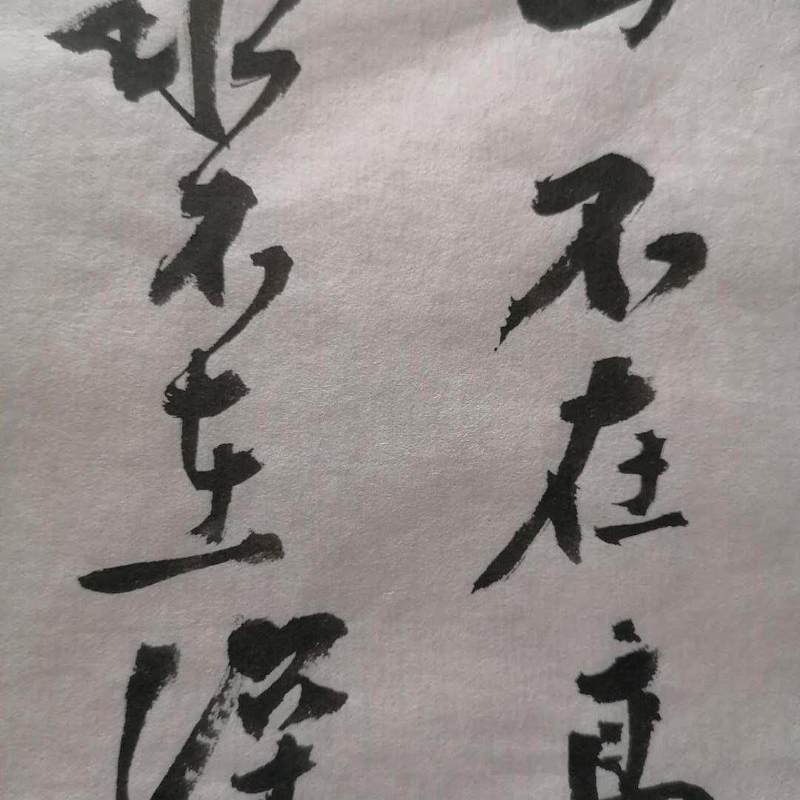 山不在高
水不在深